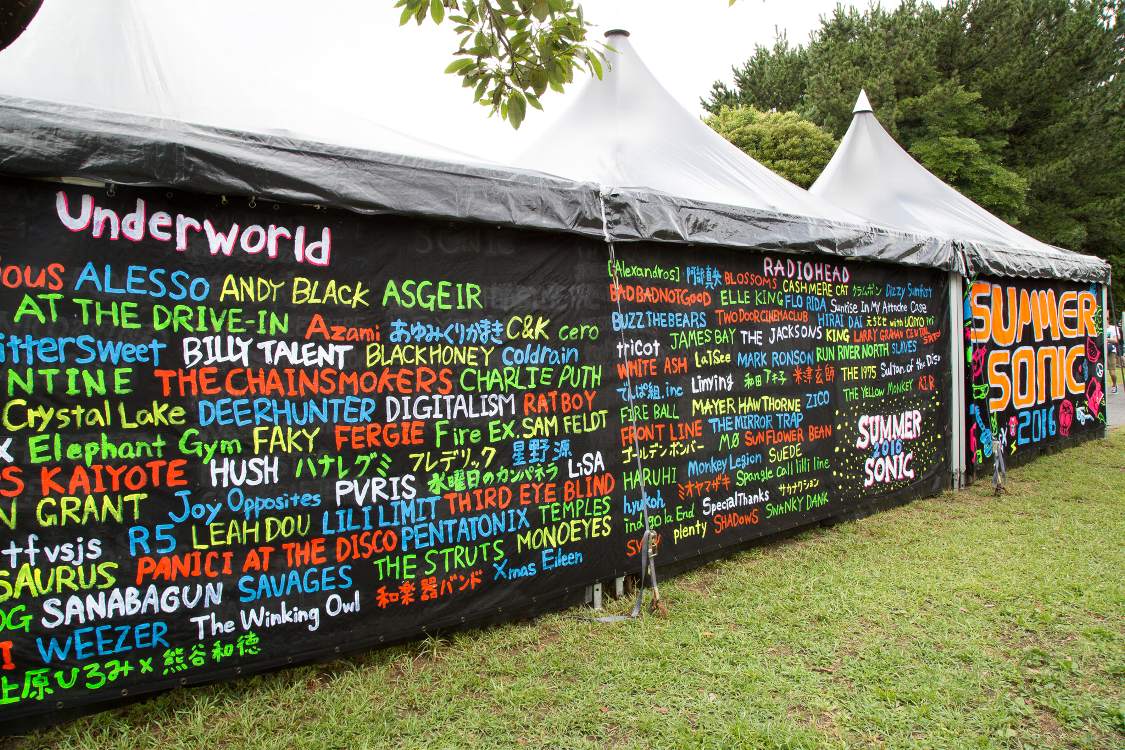 Underworld
ious ALESSO ANDY BLACK ASGEIR
AT THE DRIVE-IN Azami あゆみくりかまき C&K cero
ittersweet BILLY TALENT BLACKHONEY coldrain
NTINE THE CHAINSMOKERS CHARLIE PUTH
Crystal Lake DEERHUNTER DIGITALISM RATBOY
X Elephant Gym FAKY FERGIE Fire EX. SAM FELDT
S KAIYOTE HUSH ハナレグミ フレデリック 星野源
水曜日のカンパネラ LiSA
N GRANT Joy Opposites PVRIS THIRD EYE BLIND
ttfvsjs R5 LEAH DOU LILI LIMIT PENTATONIX TEMPLES
SAURUS PANIC! AT THE DISCO THE STRUTS MONOEYES
OG SANABAGUN SAVAGES 和楽器バンド Xmas Eileen
I WEEZER The Winking Owl
上原ひろみ x 熊谷和徳
RADIOHEAD
[Alexandros] 阿部真央 BLOSSOMS CASHMERE CAT クラムボン Dizzy Sunfist
BADBADNOTGOOD ELLE KING FLO RIDA Sunrise In My Attache Case
BUZZ THE BEARS TWO DOOR CINEMA CLUB HIRAI DAI
tricot JAMES BAY THE JACKSONS KING LARRY GRAHAM
WHITE ASH La1See MARK RONSON RUN RIVER NORTH SLAVES
でんぱ組.inc Limying 和田アキ子 米津玄師 THE 1975 Sultan of the Disco
FIRE BALL MAYER HAWTHORNE ZICO THE YELLOW MONKEY
FRONT LINE THE MIRROR TRAP
ゴールデンボンバー MØ SUNFLOWER BEAN
HARUHI Monkey Legion SUEDE
hyukoh ミオヤマザキ Spangle call lilli line
indigo la End SpecialThanks サカナクション
plenty SHADOWS SWANKY DANK
SUMMER
2016
SONIC
SUMMER
SONIC
2016